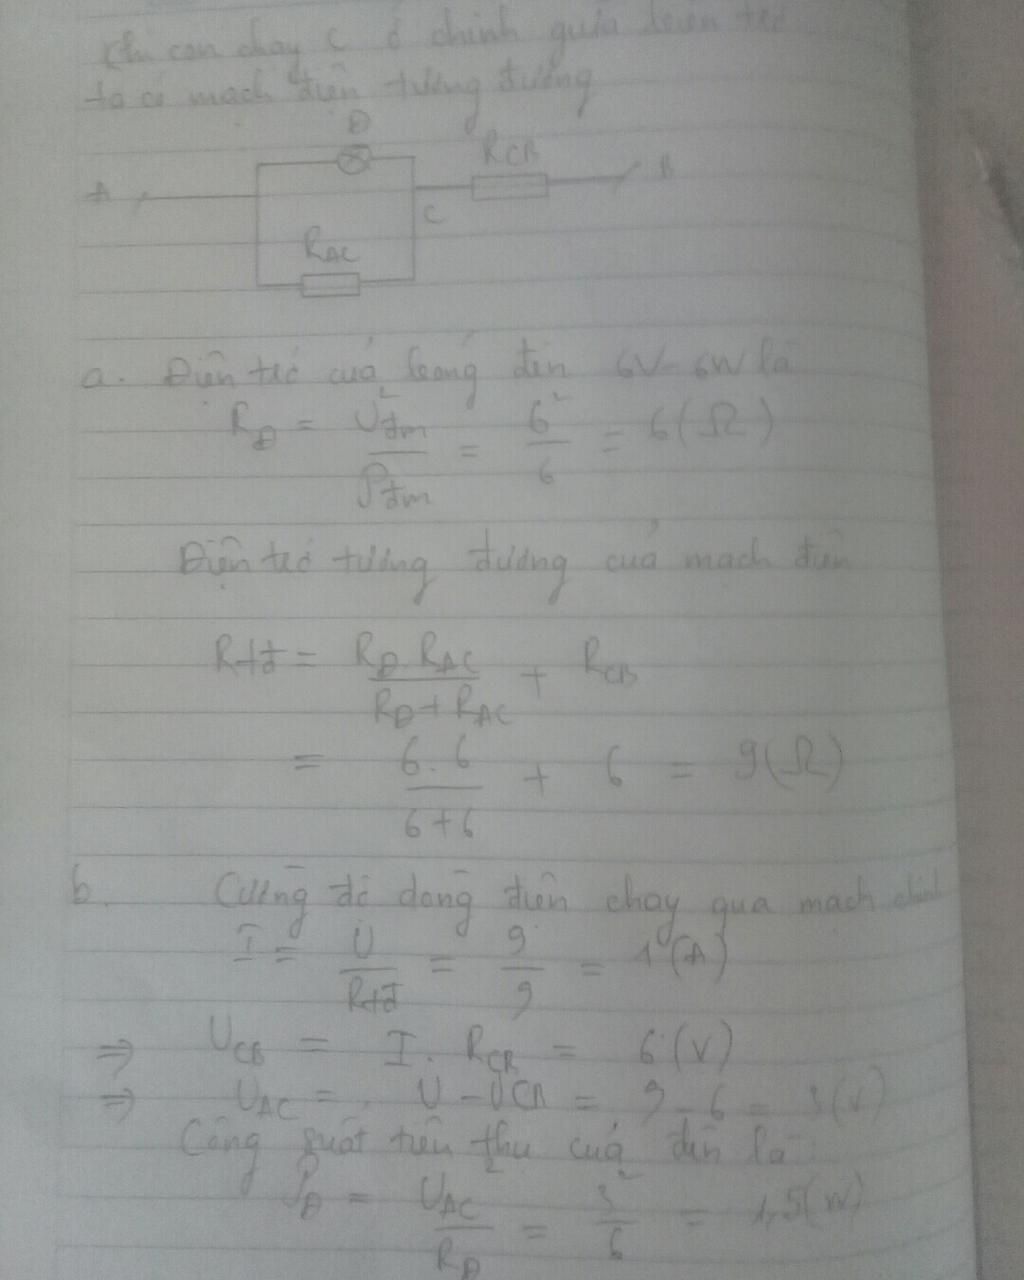 Khi con chạy C ở chính giữa biến trở
ta có mạch điện tương đương
Đ
RCB
A
B
C
RAC
a. Điện trở của bóng đèn 6V - 6W là
RĐ = U²đm / Pđm = 6² / 6 = 6 (Ω)
Điện trở tương đương của mạch điện
Rtđ = RĐ.RAC / RĐ + RAC + RCB
= 6.6 / 6+6 + 6 = 9 (Ω)
b. Cường độ dòng điện chạy qua mạch chính
I = U / Rtđ = 9 / 9 = 1 (A)
⇒ UCB = I. RCB = 6 (V)
⇒ UAC = U - UCB = 9 - 6 = 3 (V)
Công suất tiêu thụ của đèn là
PĐ = U²AC / RĐ = 3² / 6 = 1,5 (W)